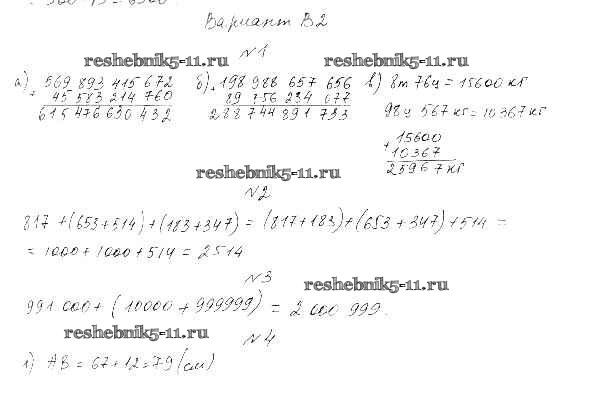 Вариант В2
№1
reshebnik5-11.ru reshebnik5-11.ru
а) 569 893 415 672 б) 198 988 657 656 в) 8т 76ц = 15600 кг
+ 45 583 214 760 + 89 756 234 077 98ц 567 кг = 10367 кг
615 476 630 432 288 744 891 733
+ 15600
10367
25967 кг
reshebnik5-11.ru
№2
817 + (653 + 514) + (183 + 347) = (817 + 183) + (653 + 347) + 514 =
= 1000 + 1000 + 514 = 2514
№3
reshebnik5-11.ru
991 000 + (10000 + 999999) = 2 000 999.
reshebnik5-11.ru
№4
1) АВ = 67 + 12 = 79 (см)